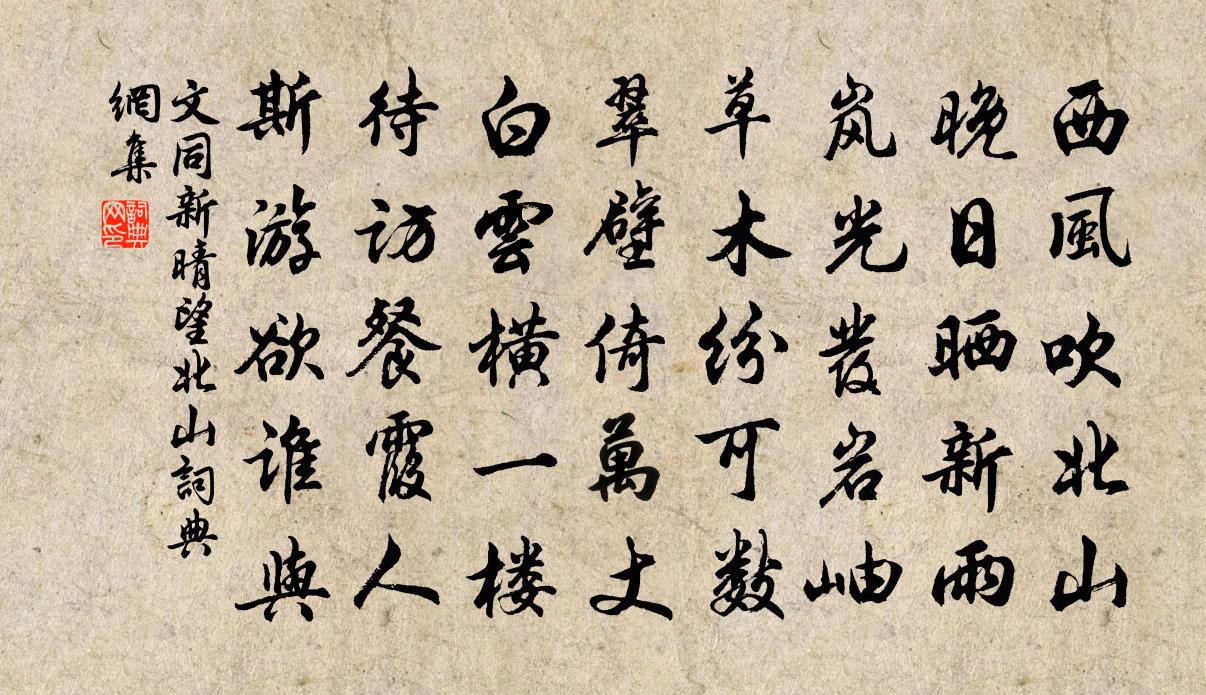 西風吹北山
晚日晒新雨
岚光發岩岫
草木纷可数
翠壁倚萬丈
白雲橫一楼
待访餐霞人
斯游欲谁與
文同新晴望北山詞典
網集
詞典
网印